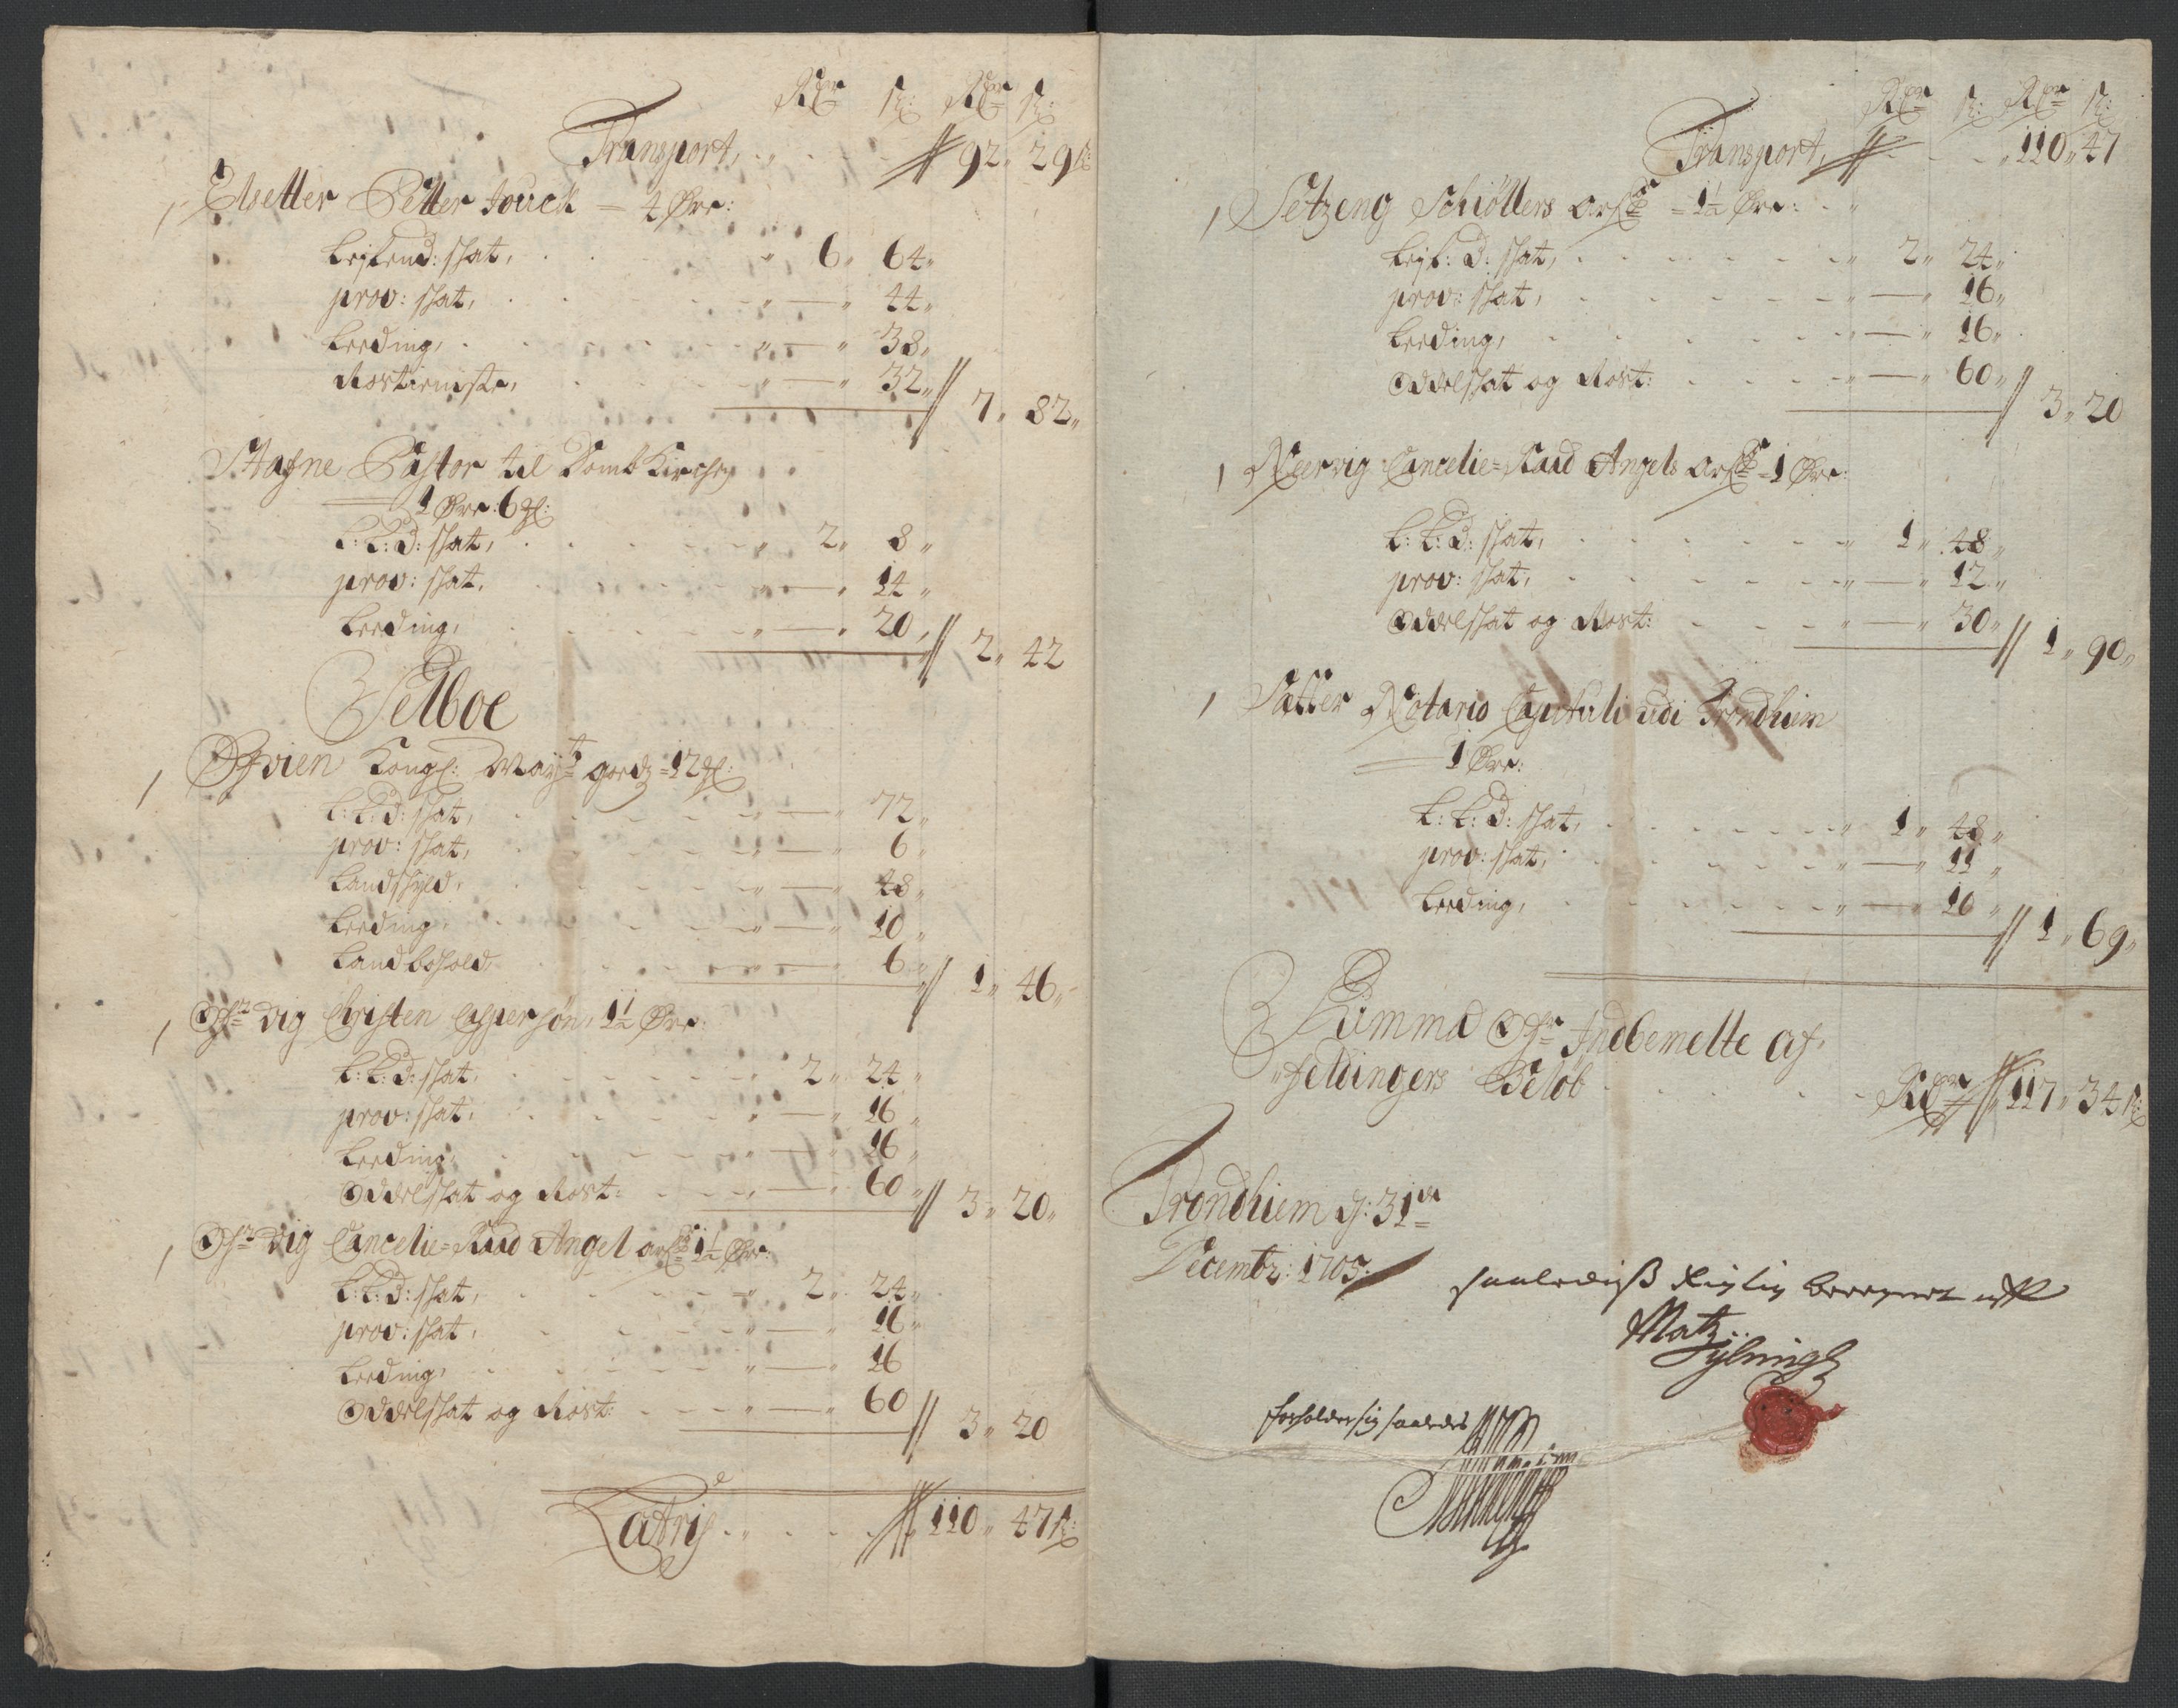 Rdr ß: Rdr ß:
Transport, 92 „ 29 ß:
1 Elsetter Petter Jouck – 4 Øre:
Leylend: skat, 6 „ 64 „
prov: skat, — „ 44 „
Leeding, — „ 38 „
Rostieniste, — „ 32 „ // 7 „ 82 „
Stafne Pastor til Domb Kirchen
1 Øre: 6 gl:
L: L: d: skat, 2 „ 8 „
prov: skat, — „ 14 „
Leeding, — „ 20 „ // 2 „ 42
Selboe
1 Øfvien Kongl: Mayts godz = 12 gl:
L: L: d: skat, — „ 72 „
prov: skat, — „ 6 „
Landskyld, — „ 48 „
Leeding, — „ 10 „
Landbohold, — „ 6 „ // 1 „ 46 „
1 dig Christen Caspersøn, 1½ Øre:
L: L: d: skat, 2 „ 24 „
prov: skat, — „ 16 „
Leeding, — „ 16 „
Oddelskat og Rost: — „ 60 „ // 3 „ 20 „
1 dig Cancelie-Raad Angel arf: 1½ Øre:
L: L: d: skat, 2 „ 24 „
prov: skat, — „ 16 „
Leeding, — „ 16
Oddelskat og Rost: — „ 60 // 3 „ 20
Latris // 110 „ 47 ß:
Rdr ß: Rdr ß:
Transport, // 110 „ 47
1 Setzeng Schiøllers arf: = 1½ Øre:
Leyl: d: skat, 2 „ 24 „
prov: skat, — „ 16 „
Leeding, — „ 16 „
Oddelskat og Rost: — „ 60 „ // 3 „ 20
1 Nervig Cancelie-Raad Angels arf: = 1 Øre:
L: L: d: skat, 1 „ 48 „
prov: skat, — „ 12 „
Oddelskat og Rost: — „ 30 „ // 1 „ 90 „
1 Sætter Notario Capituli udi Trondhiem
1 Øre:
L: L: d: skat, 1 „ 48 „
prov: skat, — „ 11 „
Leeding, — „ 10 „ // 1 „ 69 „
Summa Indbemelte af-
„feldingers Beløb Rdr // 117 „ 34 ß:
Trondhiem d: 31te
Decembr: 1705.
saaledeß Rigtig beregnet
Matz
forholder sig saaledes